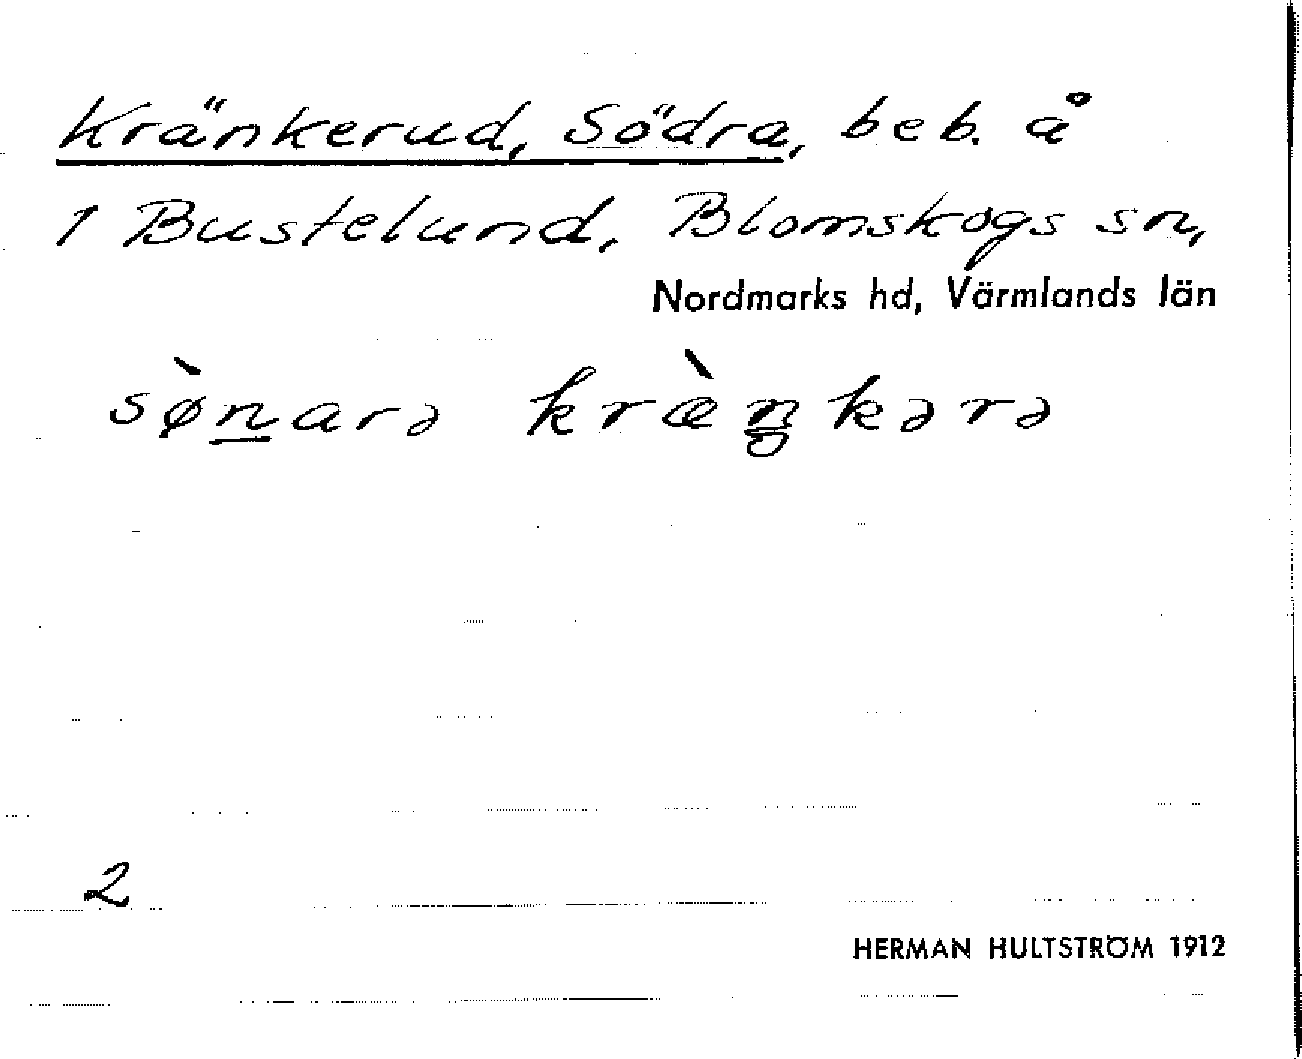 Kränkerud, Södra, beb. å
1 Bustelund, Blomskogs sn,
Nordmarks hd, Värmlands län
sø̀narə kræ̀ŋkərə
2
HERMAN HULTSTRÖM 1912